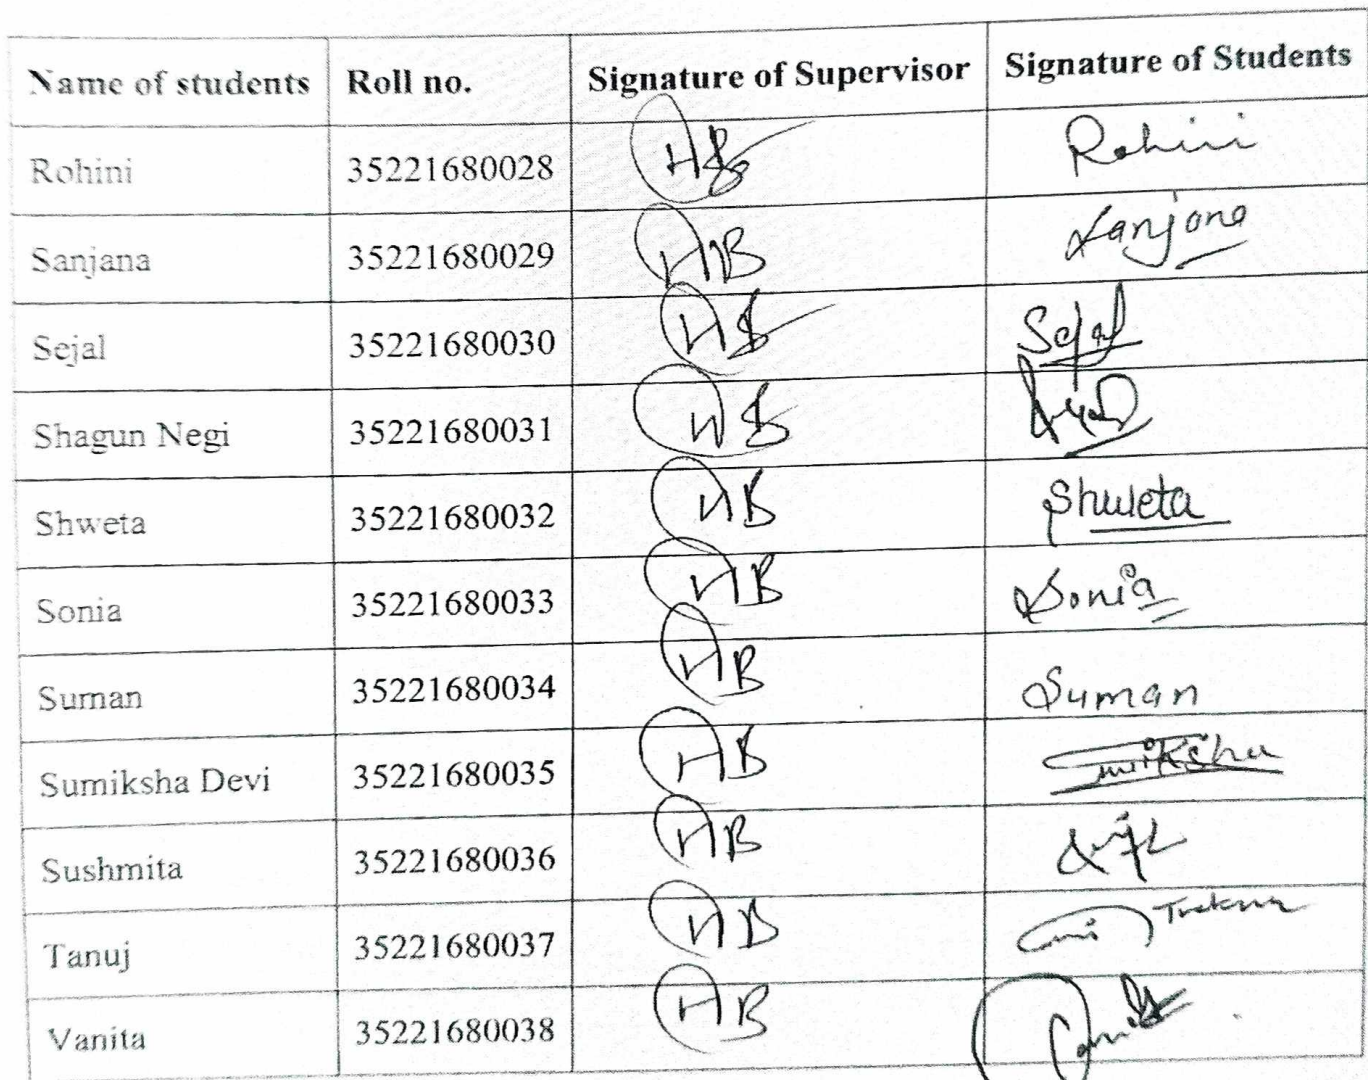 Name of students Roll no. Signature of Supervisor Signature of Students
Rohini 35221680028 HB Rohini
Sanjana 35221680029 HB Sanjana
Sejal 35221680030 HB Sejal
Shagun Negi 35221680031 HB
Shweta 35221680032 HB Shweta
Sonia 35221680033 HB Sonia
Suman 35221680034 HB Suman
Sumiksha Devi 35221680035 HB Sumiksha
Sushmita 35221680036 HB
Tanuj 35221680037 HB
Vanita 35221680038 HB